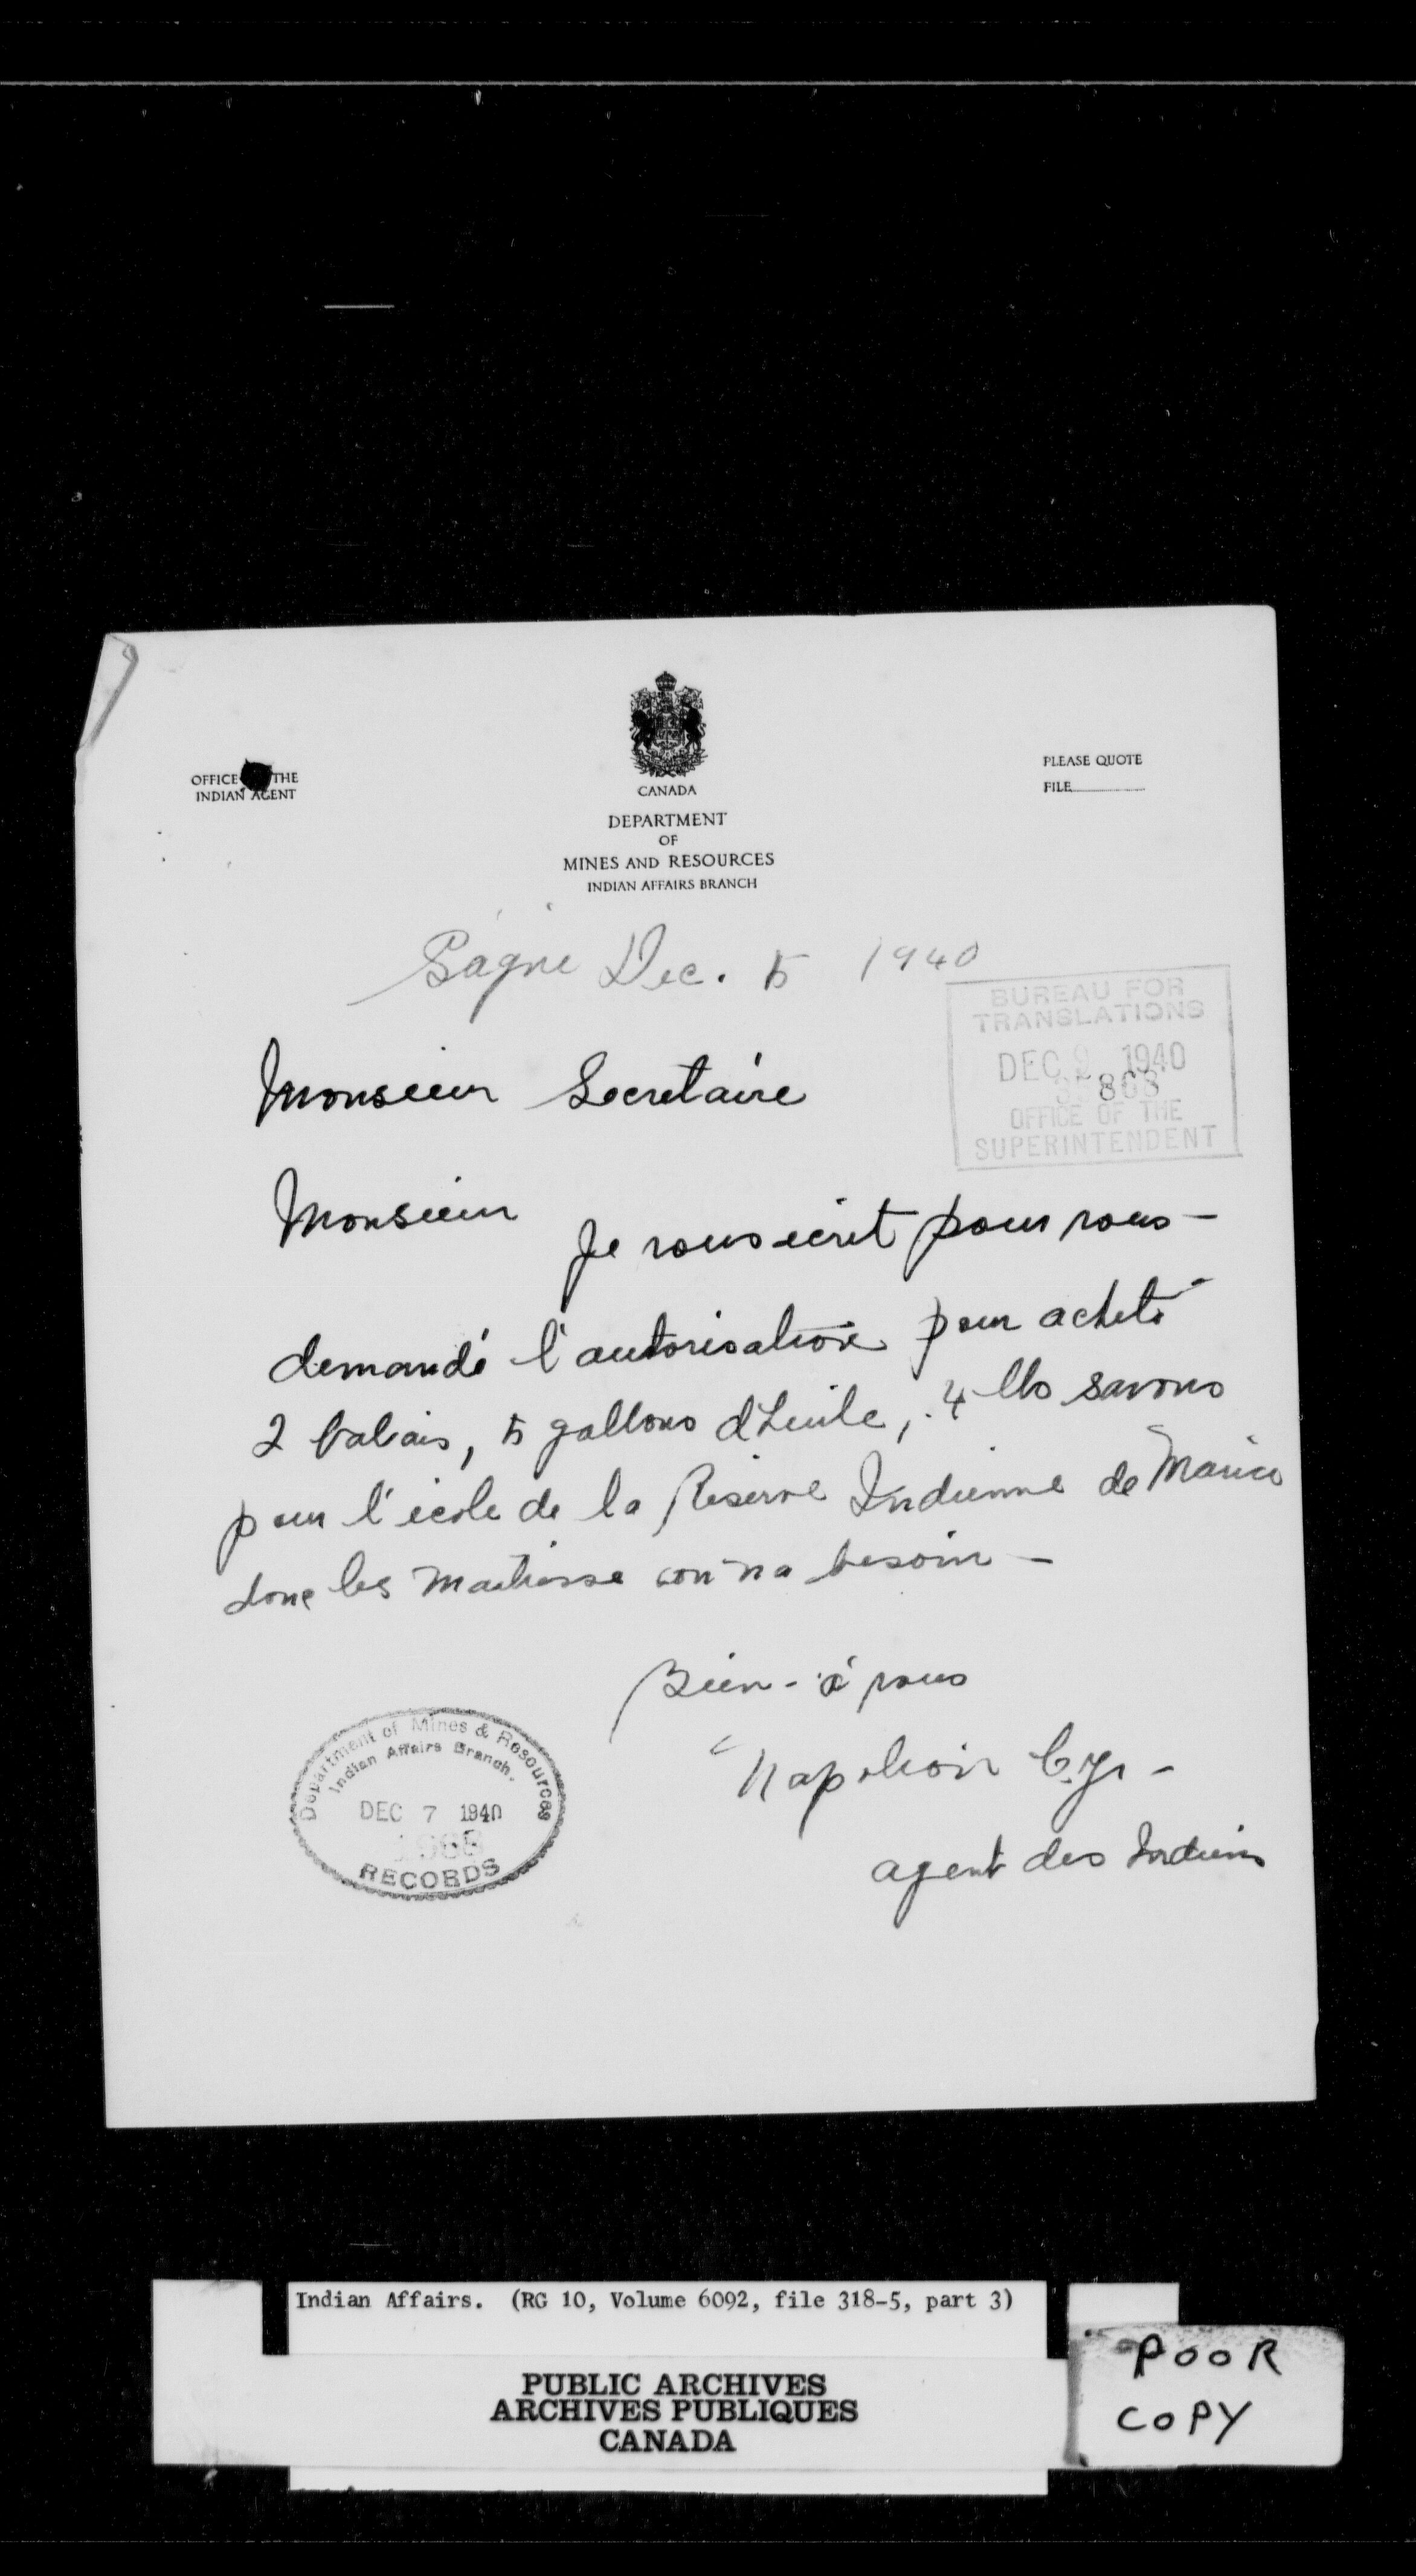 OFFICE THE
INDIAN AGENT
CANADA
DEPARTMENT
OF
MINES AND RESOURCES
INDIAN AFFAIRS BRANCH
PLEASE QUOTE
FILE
Gagné Dec. 5 1940
BUREAU FOR
TRANSLATIONS
DEC 1940
868
OFFICE OF THE
SUPERINTENDENT
Monsieur Secretaire
Monsieur
Je vous écrit pour vous -
demandé l'autorisation pour acheté
2 balais, 5 gallons d'huile, 4 lbs savons
pour l'école de la Réserve Indienne de Maria
donc les besoin -
Bien - à vous
Napoléon Cyr -
agent des Indiens
Department of Mines & Resources
Indian Affairs Branch.
DEC 7 1940
RECORDS
Indian Affairs. (RG 10, Volume 6092, file 318-5, part 3)
PUBLIC ARCHIVES
ARCHIVES PUBLIQUES
CANADA
POOR
COPY